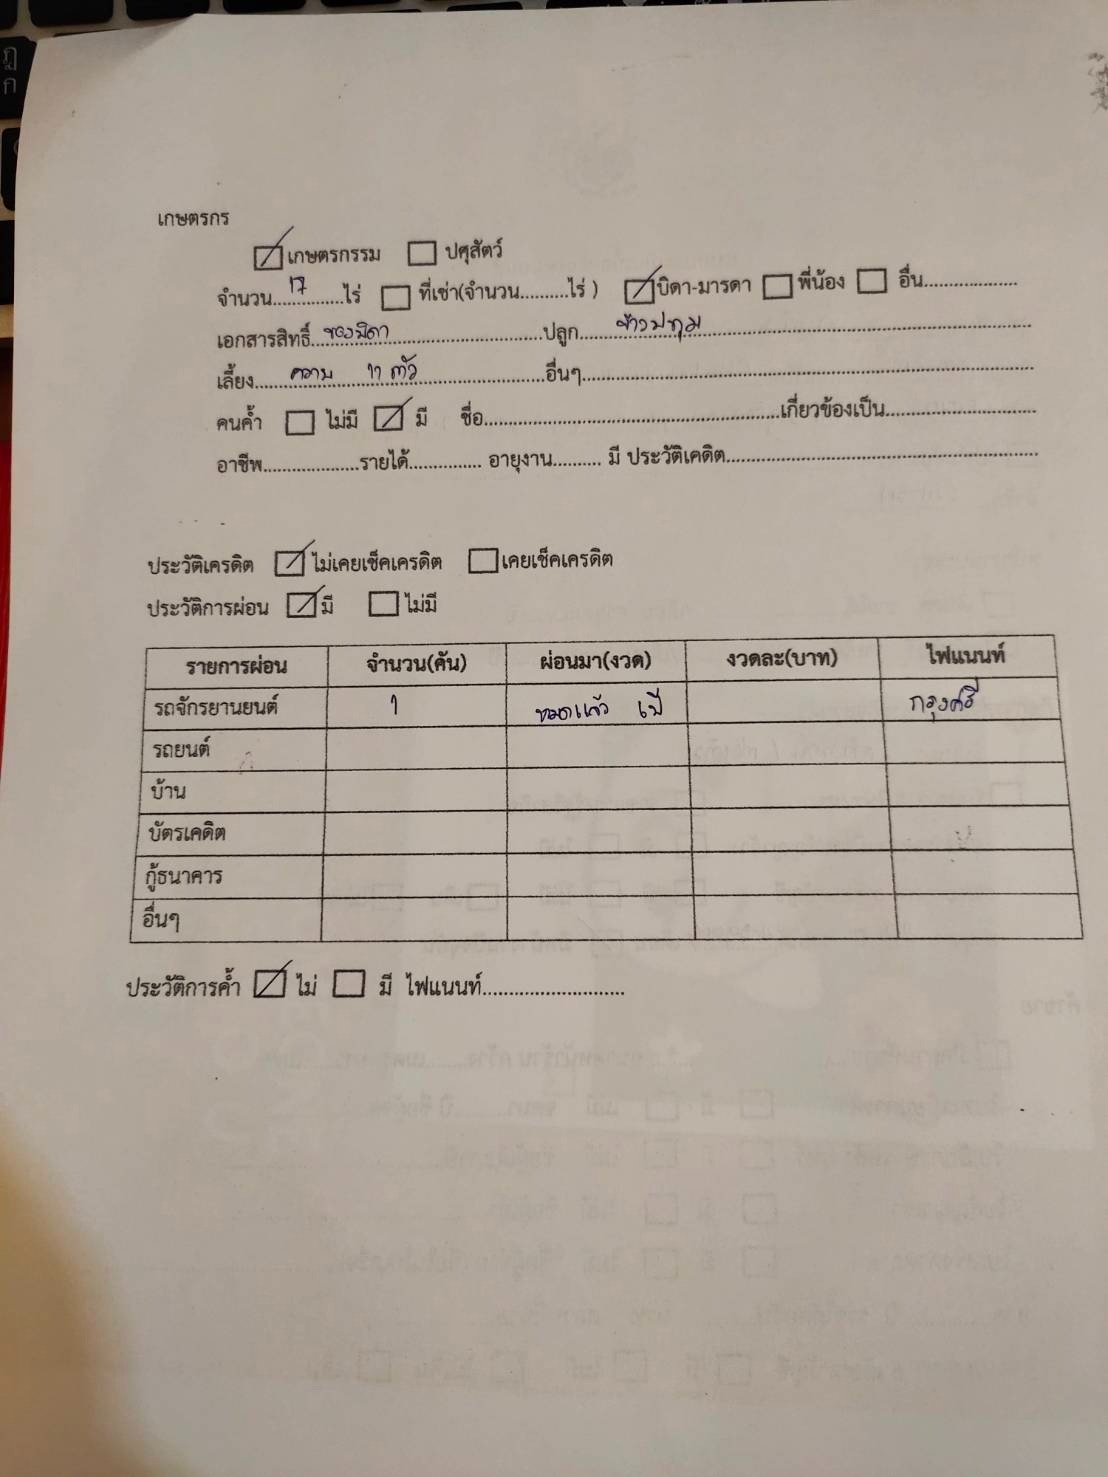 เกษตรกร
☑ เกษตรกรรม ☐ ปศุสัตว์
จำนวน....17....ไร่ ☐ ที่เช่า(จำนวน..........ไร่ ) ☑ บิดา-มารดา ☐ พี่น้อง ☐ อื่น..................
เอกสารสิทธิ์...ของบิดา...ปลูก...ข้าวปทุม...
เลี้ยง...ควาย 11 ตัว...อื่นๆ...
คนค้ำ ☐ ไม่มี ☑ มี ชื่อ...เกี่ยวข้องเป็น...
อาชีพ...รายได้... อายุงาน.......... มี ประวัติเคดิต...
ประวัติเครดิต ☑ ไม่เคยเช็คเครดิต ☐ เคยเช็คเครดิต
ประวัติการผ่อน ☑ มี ☐ ไม่มี
รายการผ่อน จำนวน(คัน) ผ่อนมา(งวด) งวดละ(บาท) ไฟแนนท์
รถจักรยานยนต์ 1 หมดแล้ว กรุงศรี
รถยนต์
บ้าน
บัตรเคดิต
กู้ธนาคาร
อื่นๆ
ประวัติการค้ำ ☑ ไม่ ☐ มี ไฟแนนท์...........................